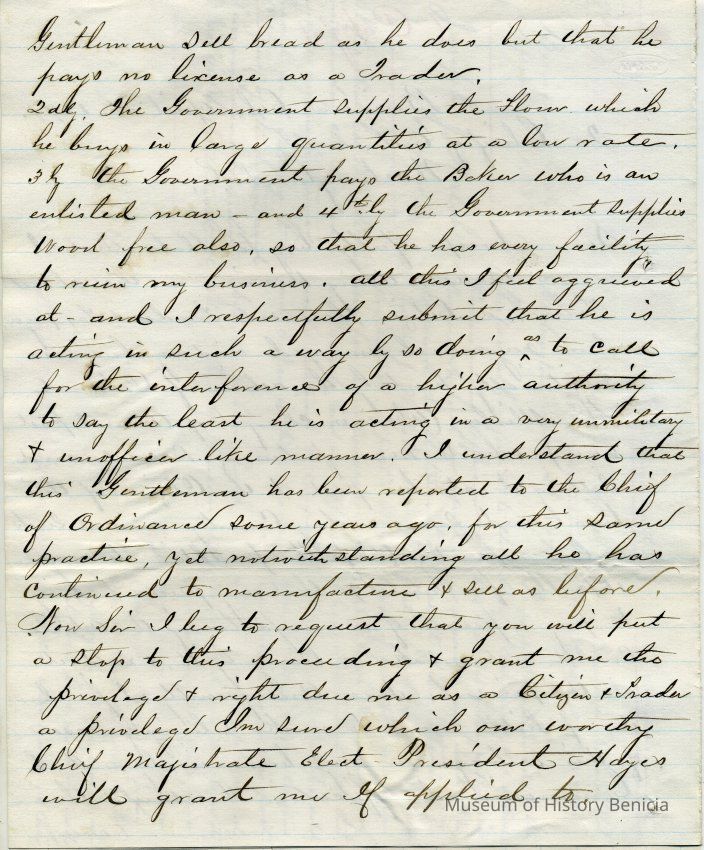 Gentleman sell bread as he does but that he
pays no license as a Trader.
2dly. The Government supplies the Flour which
he buys in large quantities at a low rate.
3ly the Government pays the Baker who is an
enlisted man - and 4thly the Government supplies
Wood free also, so that he has every facility
to ruin my business. all this I feel aggrieved
at - and I respectfully submit that he is
acting in such a way by so doing as to call
for the interference of a higher authority
to say the least he is acting in a very unmilitary
& unofficer like manner. I understand that
this Gentleman has been reported to the Chief
of Ordinance some years ago, for this same
practice, yet notwithstanding all he has
continued to manufacture & sell as before.
Now Sir I beg to request that you will put
a stop to this proceeding & grant me the
privilege & right due me as a Citizen & Trader
a privilege Im sure which our worthy
Chief Magistrate Elect President Hayes
will grant me If applied to
Museum of History Benicia